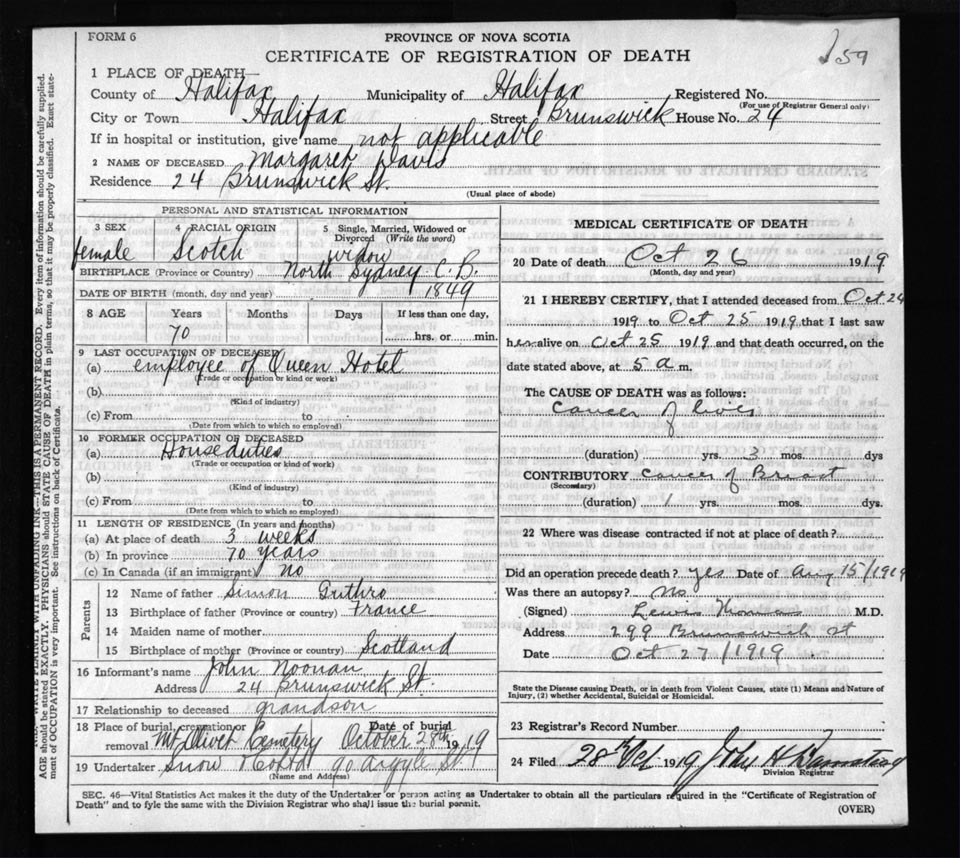 FORM 6
PROVINCE OF NOVA SCOTIA
CERTIFICATE OF REGISTRATION OF DEATH
159
1 PLACE OF DEATH—
County of Halifax Municipality of Halifax Registered No.
(For use of Registrar General only)
City or Town Halifax Street Brunswick House No. 24
If in hospital or institution, give name not applicable
2 NAME OF DECEASED Margaret Davis
Residence 24 Brunswick St.
(Usual place of abode)
PERSONAL AND STATISTICAL INFORMATION
3 SEX 4 RACIAL ORIGIN 5 Single, Married, Widowed or Divorced (Write the word)
female Scotch widow
BIRTHPLACE (Province or Country) North Sydney C.B.
DATE OF BIRTH (month, day and year) 1849
8 AGE Years Months Days If less than one day,
70 hrs. or min.
9 LAST OCCUPATION OF DECEASED
(a) employee of Queen Hotel
(Trade or occupation or kind or work)
(b)
(Kind of industry)
(c) From to
(Date from which to which so employed)
10 FORMER OCCUPATION OF DECEASED
(a) House duties
(Trade or occupation or kind of work)
(b)
(Kind of industry)
(c) From to
(Date from which to which so employed)
11 LENGTH OF RESIDENCE (In years and months)
(a) At place of death 3 weeks
(b) In province 70 years
(c) In Canada (if an immigrant) no
Parents
12 Name of father Simon Guthro
13 Birthplace of father (Province or country) France
14 Maiden name of mother
15 Birthplace of mother (Province or country) Scotland
16 Informant's name John Noonan
Address 24 Brunswick St.
17 Relationship to deceased grandson
18 Place of burial, cremation or removal Mt Olivet Cemetery Date of burial October 28th 1919
19 Undertaker Snow 90 Argyle St.
(Name and Address)
MEDICAL CERTIFICATE OF DEATH
20 Date of death Oct 26 1919
(Month, day and year)
21 I HEREBY CERTIFY, that I attended deceased from Oct 24
1919 to Oct 25 1919 that I last saw
her alive on Oct 25 1919 and that death occurred, on the
date stated above, at 5 a m.
The CAUSE OF DEATH was as follows:
Cancer of liver
(duration) yrs. 3 mos. dys
CONTRIBUTORY Cancer of Breast
(Secondary)
(duration) 1 yrs. mos. dys.
22 Where was disease contracted if not at place of death?
Did an operation precede death? yes Date of Aug 15/1919
Was there an autopsy? No
(Signed) Lewis Thomas M.D.
Address 299 Brunswick St
Date Oct 27/1919
State the Disease causing Death, or in death from Violent Causes, state (1) Means and Nature of
Injury, (2) whether Accidental, Suicidal or Homicidal.
23 Registrar's Record Number
24 Filed 28th Oct 1919 John H
Division Registrar
SEC. 46—Vital Statistics Act makes it the duty of the Undertaker or person acting as Undertaker to obtain all the particulars required in the "Certificate of Registration of
Death" and to fyle the same with the Division Registrar who shall issue the burial permit.
(OVER)
WRITE PLAINLY WITH UNFADING INK—THIS IS A PERMANENT RECORD. Every item of information should be carefully supplied.
AGE should be stated EXACTLY. PHYSICIANS should STATE CAUSE OF DEATH in plain terms, so that it may be properly classified. Exact state-
ment of OCCUPATION is very important. See instructions on back of Certificate.